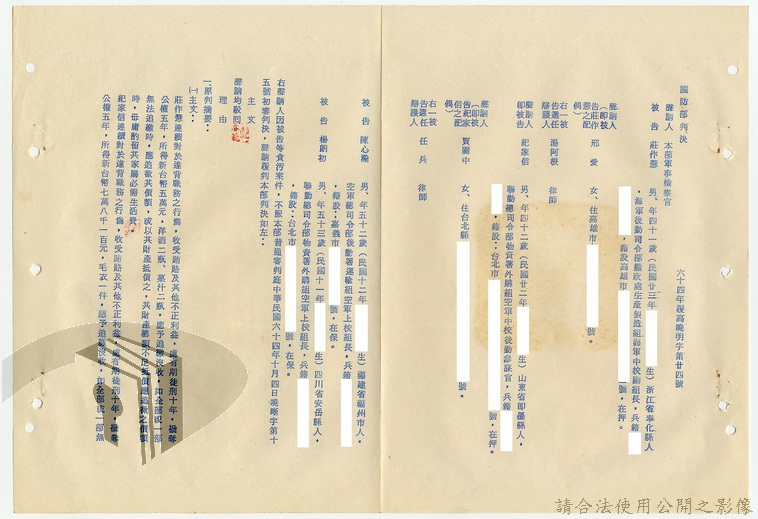 國防部判決
六十四年覆高曉明字第廿四號
聲請人 本部軍事檢察官
被告 莊作慧 男、年四十一歲(民國廿三年 生)浙江省奉化縣人
、海軍後勤司令部艦政處生產製造組海軍中校副組長,兵籍
,籍設高雄市 號,在押。
聲請人
(即被
告莊作
慧之配
偶)
邢愛 女、住高雄市 號。
右一被
告選任
辯護人
湯阿根 律師
聲請人
即被告
紀家信 男、年四十二歲(民國廿二年 生)山東省即墨縣人,
聯勤總司令部物資署外購組空軍中校後勤參謀官,兵籍
,籍設:台北市 號,在押。
聲請人
(即被
告紀家
信之配
偶)
賈園中 女、住台北縣 號。
右一被
告選任
辯護人
任兵 律師
被告 陳心瀚 男、年五十二歲(民國十二年 生)福建省福州市人,
空軍總司令部後勤署運輸組空軍上校組長,兵籍
,籍設:嘉義市 號,在保。
被告 楊朗初 男、年五十三歲(民國十一年 生)四川省安岳縣人,
聯勤總司令部物資署外購組空軍上校組長,兵籍
,籍設:台北市 號,在保。
右聲請人因被告等貪污案件,不服本部普通審判庭中華民國六十四年十月四日曉晰字第十
五號初審判決,聲請覆判本部判決如左:
主文
聲請均駁回。
理由
一、原判摘要:
(一)主文:
莊作慧連續對於違背職務之行為,收受賄賂及其他不正利益,處有期徒刑十年,褫奪
公權五年,所得新台幣五萬元,洋酒二瓶、菓汁二瓶,應予追繳沒收,如全部或一部
無法追繳時,應追徵其價額,或以其財產抵償之,其財產總額不足抵償應追徵之價額
時,毋庸酌留其家屬必需生活費。
紀家信連續對於違背職務之行為,收受賄賂及其他不正利益,處有期徒刑十年,褫奪
公權五年,所得新台幣七萬八千一百元,毛衣一件,應予追繳沒收,如全部或一部無
請合法使用公開之影像